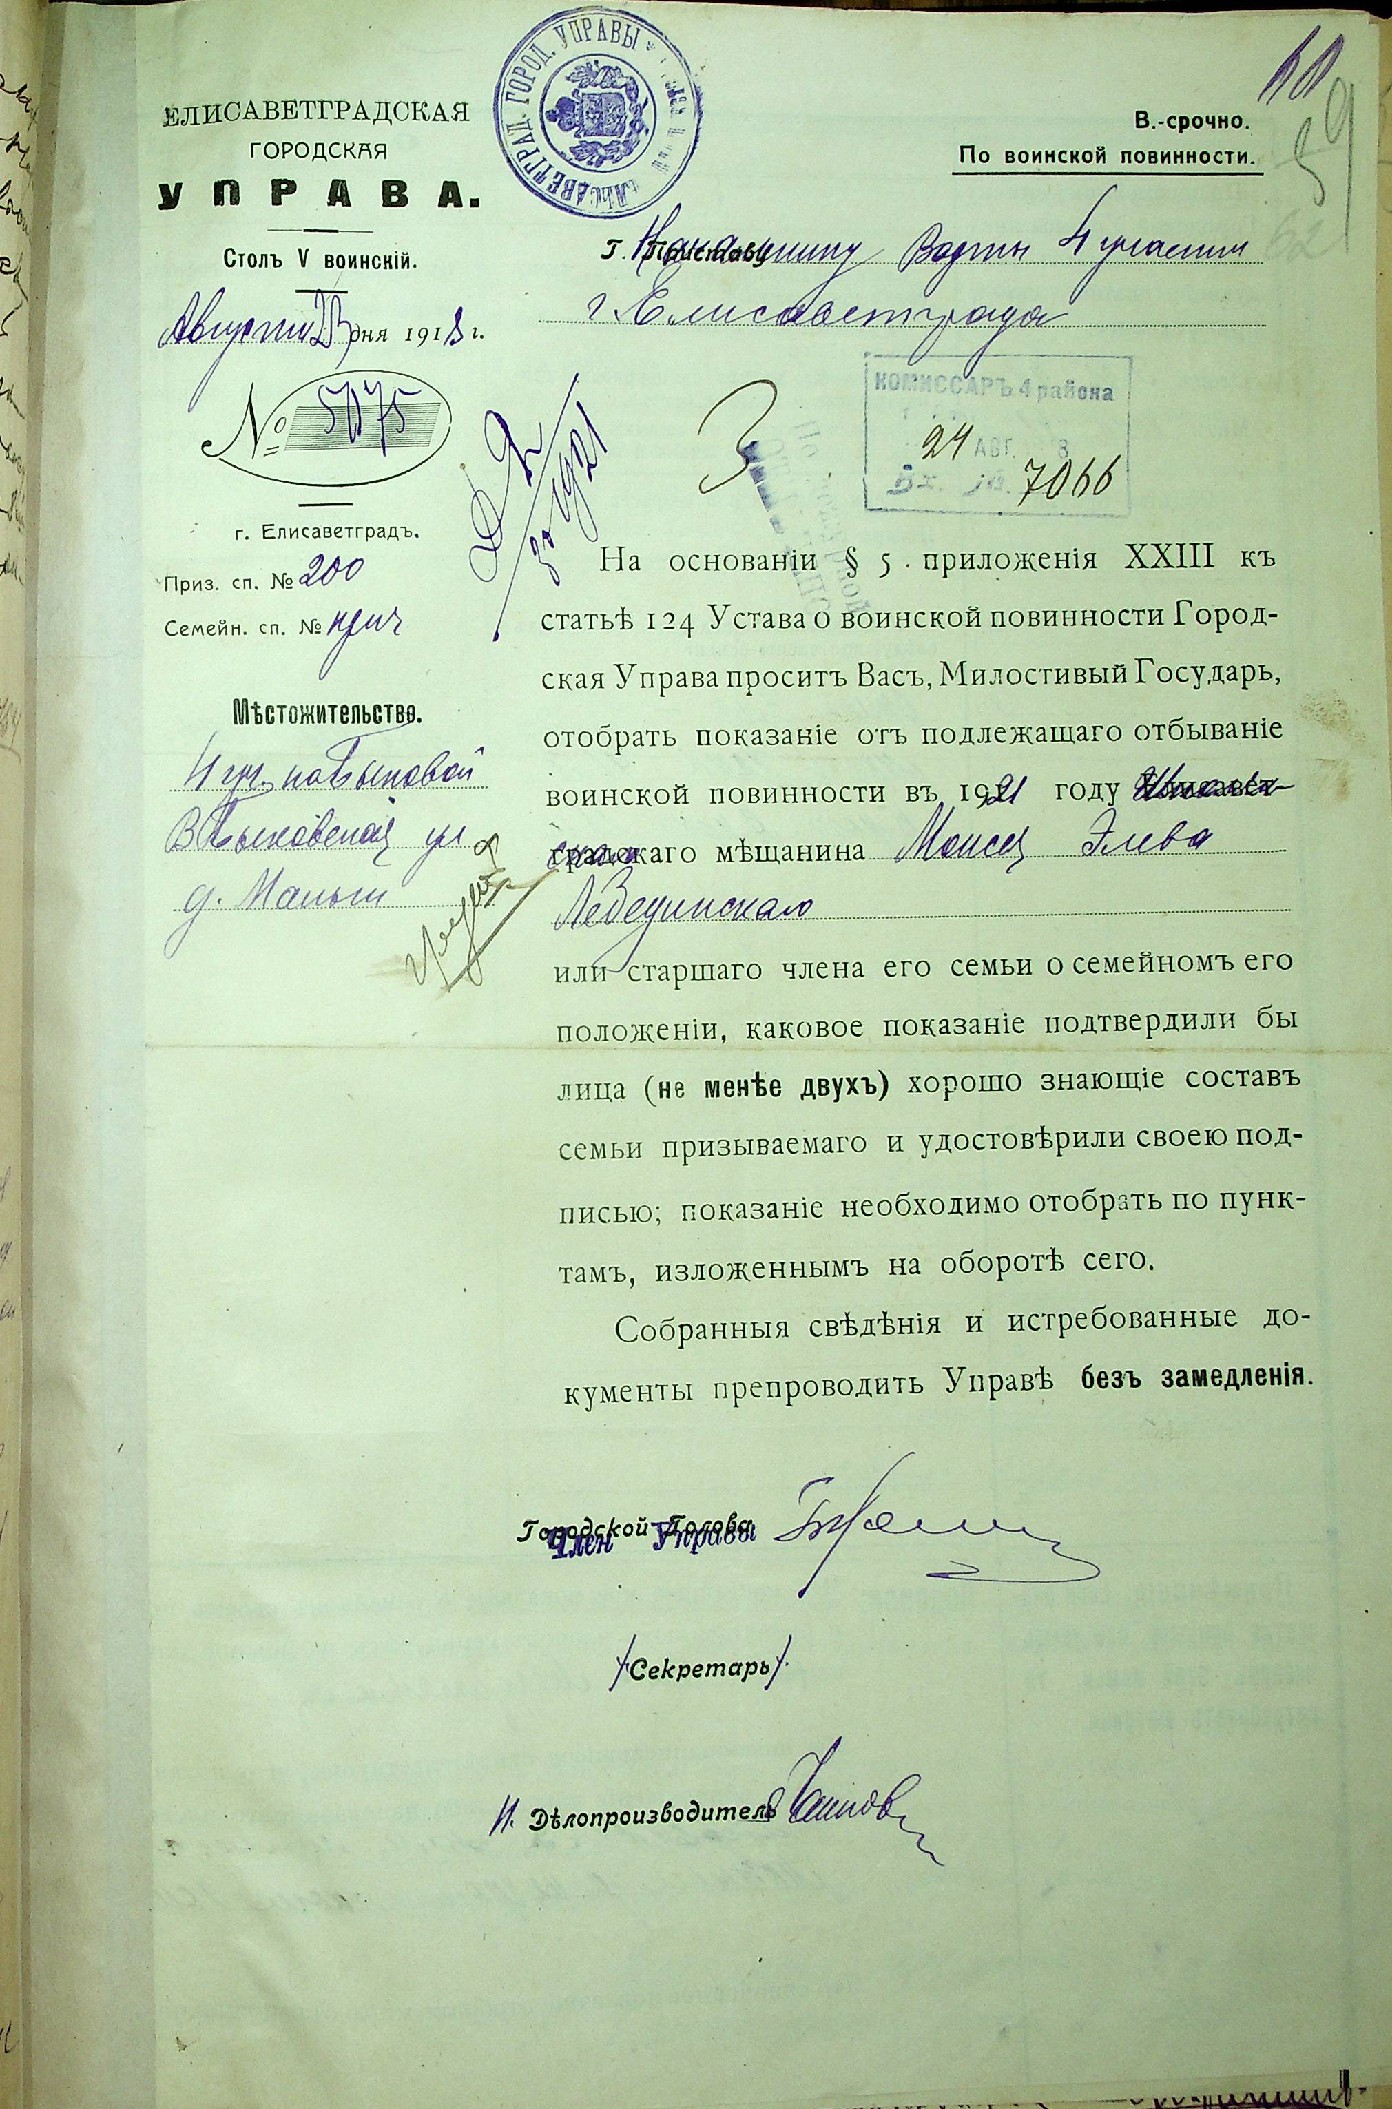 ЕЛИСАВЕТГРАДСКАЯ
ГОРОДСКАЯ
УПРАВА.
Столъ V воинскій.
Августа 23 дня 1918 г.
№ 5075
г. Елисаветградъ.
Приз. сп. № 200
Семейн. сп. №
Мѣстожительство.
ул.
ЕЛИСАВЕТГРАД. ГОРОД. УПРАВЫ
В.-срочно.
По воинской повинности.
59
62
Г. Приставу Начальнику Варты 4 участка
г. Елисаветграда
КОМИССАРЪ 4 района
24 АВГ. 8
Вх. № 7066
3
1921
На основаніи § 5 приложенія XXIII къ
статьѣ 124 Устава о воинской повинности Город-
ская Управа проситъ Васъ, Милостивый Государь,
отобрать показаніе отъ подлежащаго отбываніе
воинской повинности въ 1921 году Елисавет-
градскаго мѣщанина Моисея Элева
Лебединскаго
или старшаго члена его семьи о семейномъ его
положеніи, каковое показаніе подтвердили бы
лица (не менѣе двухъ) хорошо знающіе составъ
семьи призываемаго и удостовѣрили своею под-
писью; показаніе необходимо отобрать по пунк-
тамъ, изложеннымъ на оборотѣ сего.
Собранныя свѣдѣнія и истребованные до-
кументы препроводить Управѣ безъ замедленія.
Городской Голова
Член Управы
Секретарь
И. Дѣлопроизводитель